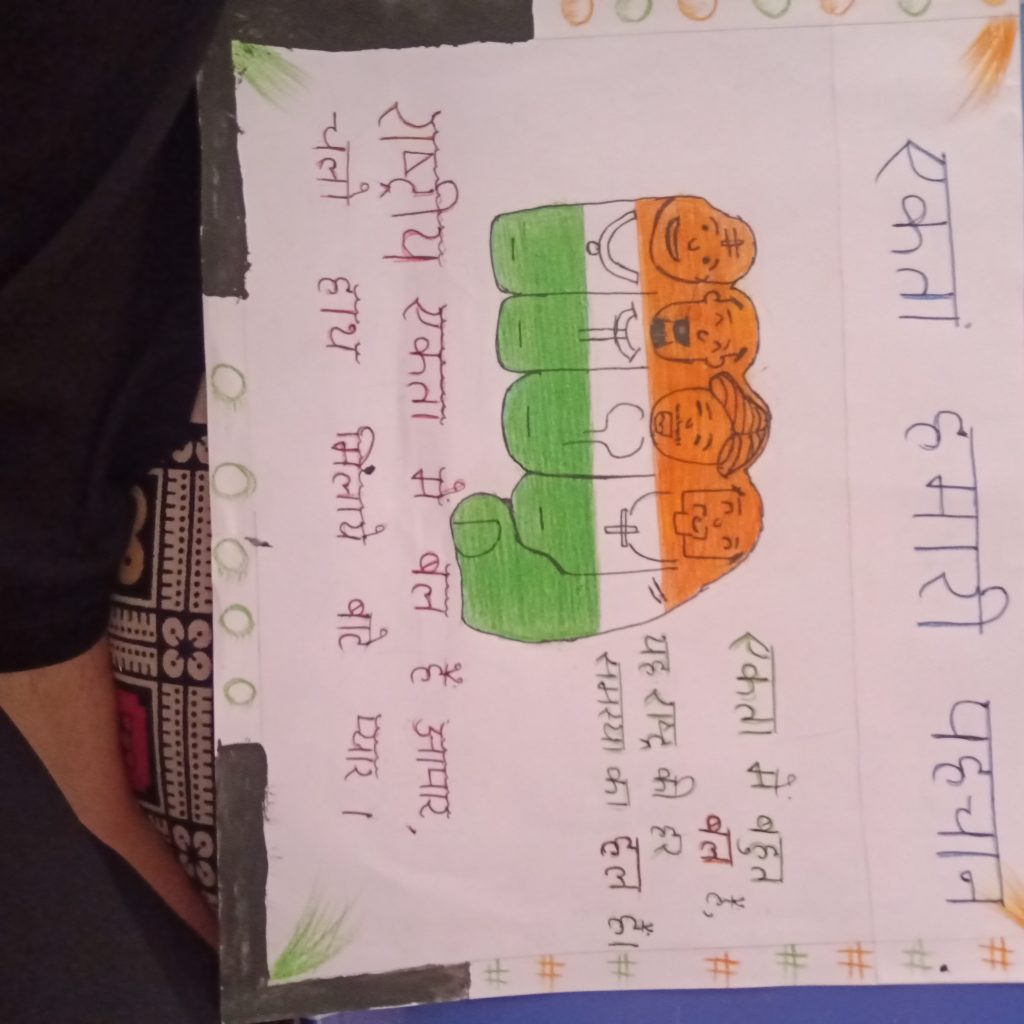 एकता हमारी पहचान
एकता में बहुत
बल है,
यह राष्ट्र की हर
समस्या का हल है।
राष्ट्रीय एकता में बल है अपार,
चलो हाथ मिलाये बाटे प्यार।